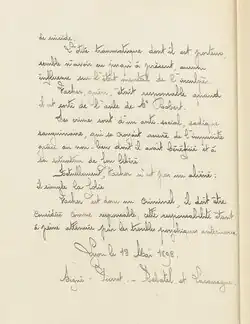 de suicide.
L'otite traumatique dont il est porteur,
semble n'avoir eu jusqu'à présent, aucune
influence sur l'état mental de l'accusé.
Vacher, guéri, était responsable quand
il est sorti de l'asile de St Robert.
Ses crimes sont d'un anti-social, sadique
sanguinaire, qui se croyait assuré de l'impunité
grâce au non-lieu dont il avait bénéficié et à
sa situation de fou libéré.
Actuellement, Vacher n'est pas un aliéné :
il simule la folie.
Vacher est donc un criminel, il doit être
considéré comme responsable, cette responsabilité étant
à peine atténuée par les troubles psychiques antérieurs.
Lyon le 1898.
Signé : et Lacassagne.